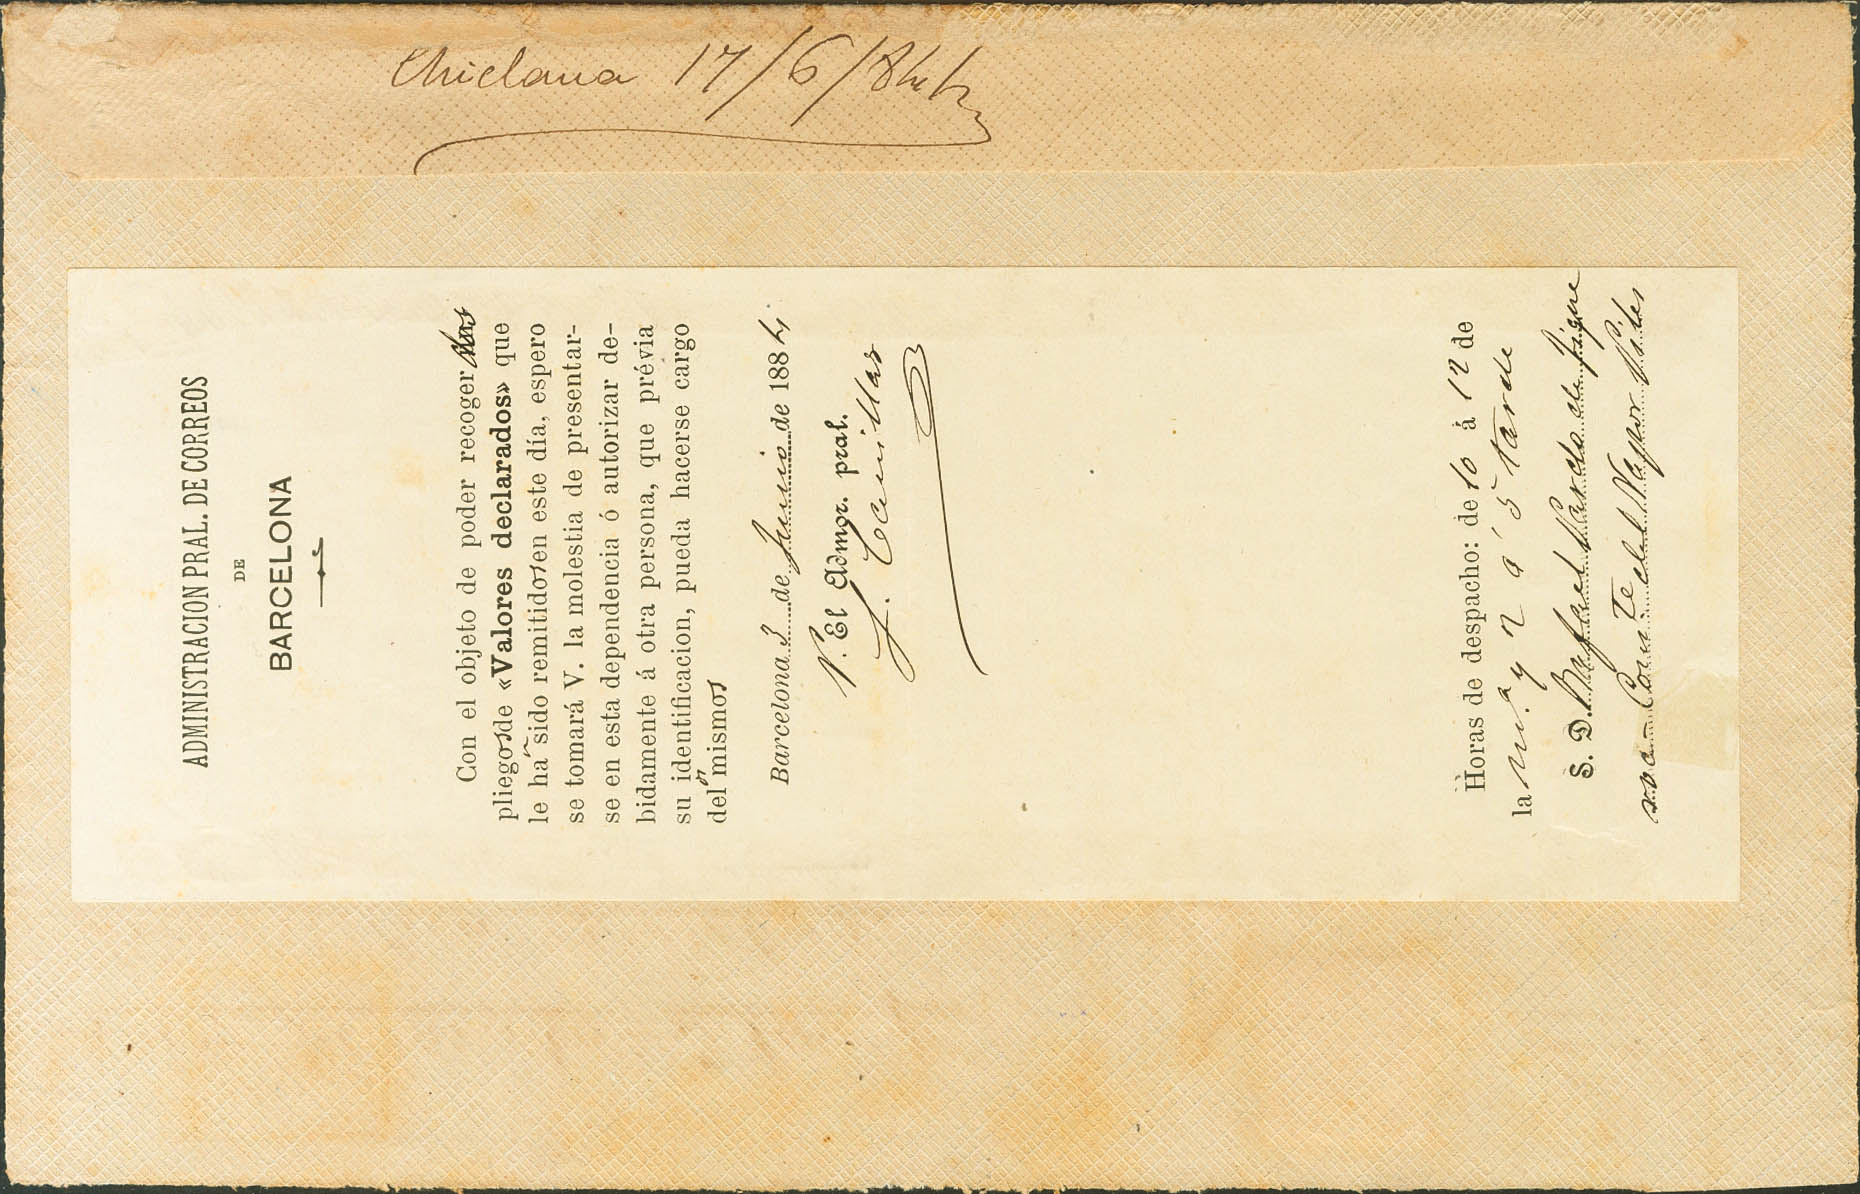 Chiclana 17/6/84
ADMINISTRACION PRAL. DE CORREOS
DE
BARCELONA
Con el objeto de poder recoger dos
pliegos de «Valores declarados» que
le han sido remitidos en este día, espero
se tomará V. la molestia de presentar-
se en esta dependencia ó autorizar de-
bidamente á otra persona, que prévia
su identificacion, pueda hacerse cargo
de los mismos
Barcelona 3 de Junio de 1884
P. El Admor. pral.
J.
Horas de despacho: de 10 á 12 de
la m.ª y 2 á 5 tarde
S. D. Rafael Pardo de Figue
roa Com.te del Vapor